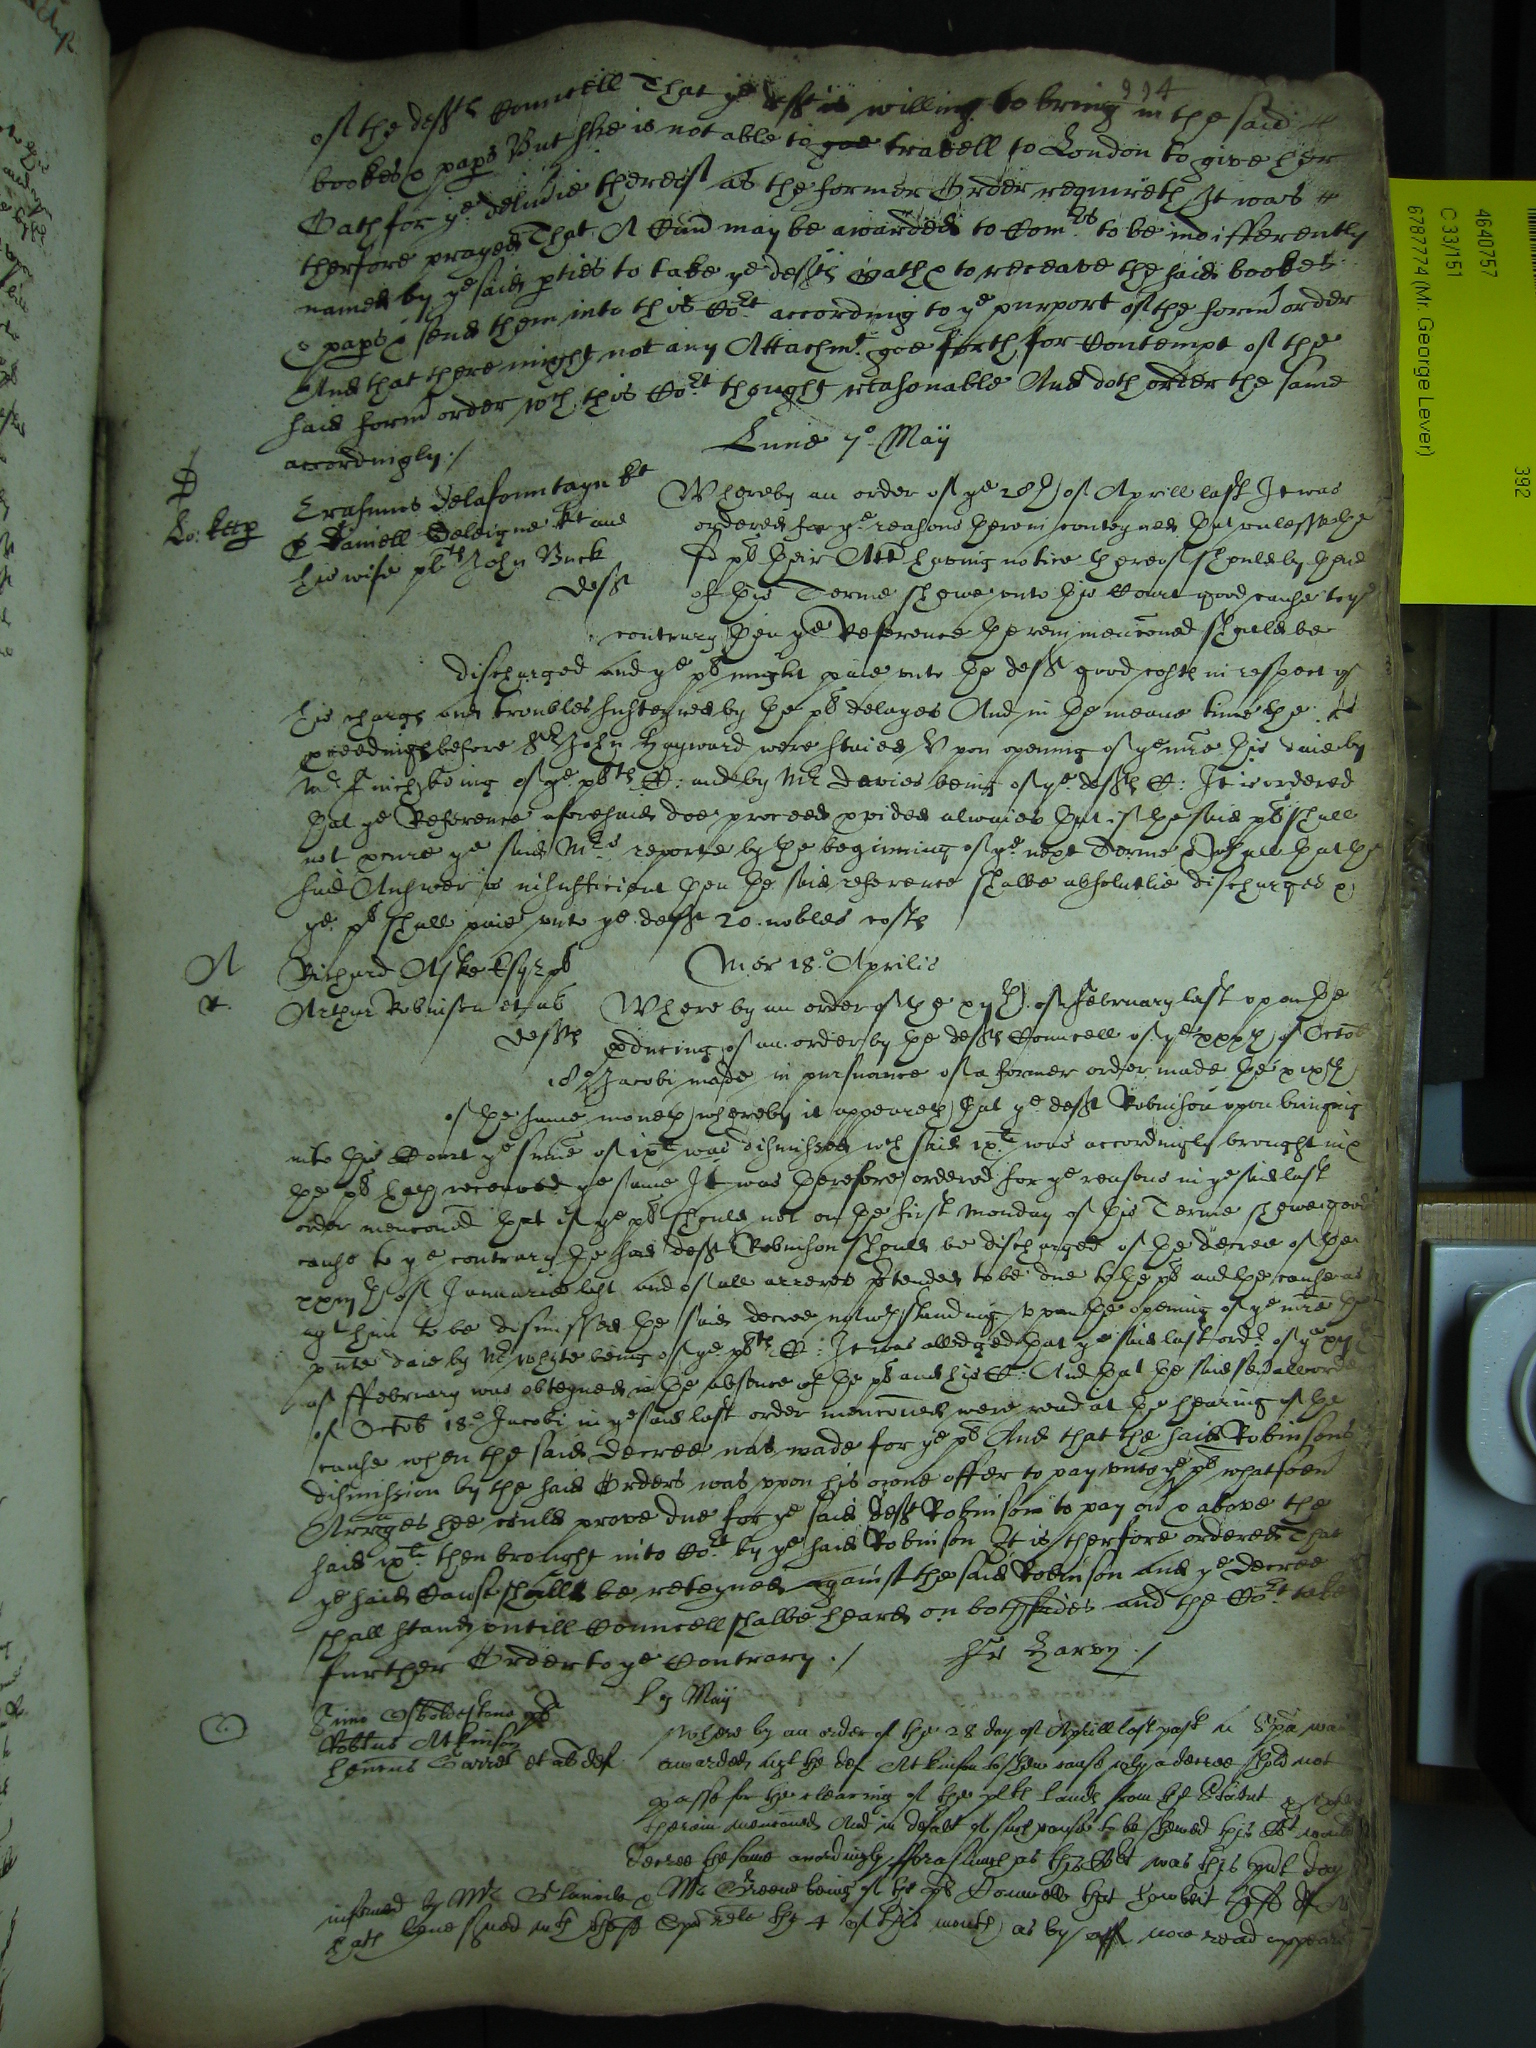 994
of the defts Councell That ye deft is willing to bring in the said
bookes & pap's But shee is not able to goe travell to London to give her
Oath for ye delivrie thereof as the former Order requireth It was
therfore prayed That A Comd may be awarded to Com.rs to be indifferently
named by ye said pties to take ye defts Oath & to receave the said bookes
& pap's & send them into this Co.rt according to ye purport of the form' order
And that there might not any Attachmt goe forth for Contempt of the
said form' order wch this Co.rt thought reasonable And doth order the same
accordingly ./
Lune 7o. Maij
Lo: keep
Erasmus Delafountayn kt
& Daniell Deleigne kt and
his wife pltes John Buck
deft
Whereby an order of ye 28th of Aprill last It was
ordered for ye reasons therein conteyned that unlesse the
sd pl their Att having notice thereof should by thend
of this Terme shewe unto this Court good cause to ye
contrary then ye Reference therein menconed should be
discharged and ye pl might paie unto the deft good costs in respect of
his chargs and troubles susteyned by the pl delayes And in the meane time the
pceedings before Sr John Hayward were staied Upon opening of ye mre this daie by
Mr Finch being of ye plts C: and by Mr Davies being of ye defts C: It is ordered
that ye Reference aforesaid doe proceed pvided alwaies that if the said pl shall
not pcure ye said Mrs reporte by the beginning of ye next Terme that the
said Answer is insufficient then the said reference shalbe absolutlie discharged &
ye pl shall paie unto ye deft 20 nobles costs
A
Richard Aske Esqr pl
Arthur Robinson et ab
defts
Mer 18.o Aprilis
Whereby an order of the xijth of February last upon the
pducing of an order by the defts Councell of ye xxxth of Octob
18o Jacobi made in pursuance of a former order made the xixth
of the same moneth whereby it appeareth that ye deft Robinson upon bringing
into this Court ye sume of ixli was dismissed wch said ixli was accordingly brought in &
the pl hath receaved ye same It was therefore ordered for ye reasons in ye said last
order menconed that if ye pl should not on the first Monday of this Terme shewe good
cause to ye contrary the said deft Robinson should be discharged of the decree of the
xxiijth of Januarie last and of all arreres ptended to be due to the pl and the cause as
agt him to be dismissed the said decree notwthstanding Upon the opening of ye mre the
pnte daie by Mr Whyte being of ye plts C: It was alledged that ye said last ordr of ye xijth
of ffebruary was obteyned in the absence of the pl and his C: And that the said sevall orders
of Octob 18o Jacobi in ye said last order menconed were read at the hearing of the
cause when the said decree was made for ye pl And that the said Robinsons
dismission by the said Orders was upon his owne offer to pay unto ye pl whatsoev'
Arrerages hee could prove due for ye said deft Robinson to pay ov' & above the
said ixli then brought into Co.rt by ye said Robinson It is therfore ordered That
ye said Cause shall be reteyned against the said Robinson and ye decree
shall stand untill Councell shalbe heard on both sides and the Co.rt take
further Order to ye Contrary ./
Har Harvy ./
Maij
Osbaldestone pl
Robtus Atkinson
Garret et ab def
Where by an order of the 28 day of Aprill last past a Spa was
awarded agt the def Atkinson to shew cause why a decree shold not
passe for the clearing of the plts lands from the Statut
therein menconed And in default of such cause to be shewed this Ct would
decree the same accordingly fforasmuch as this Co't was this pnt day
informed by Mr & Mr Greene being of the pl Councell that
hath bene sved wth the 4 of this month as by aff now read appeares
4640757
C 33/151
6787774 (Mr. George Lever)
392